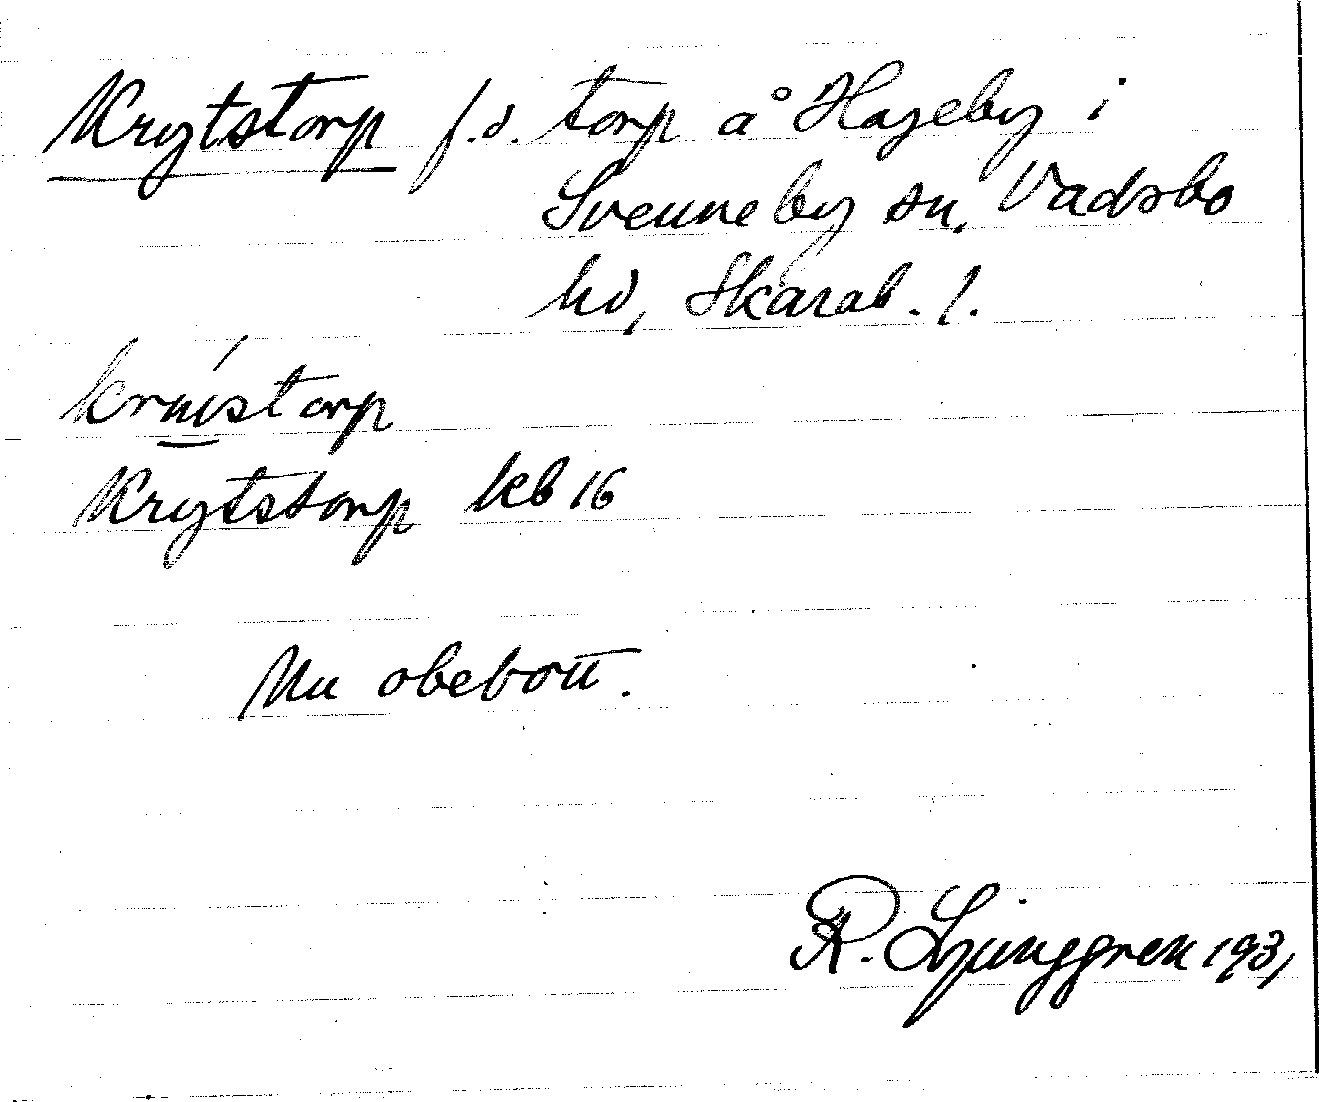 Krytstorp f.d. torp å Hageby i
Svenneby sn, Vadsbo
hd, Skarab. l.
Krytstorp kb 16
Nu obebott.
R. Ljunggren 1931